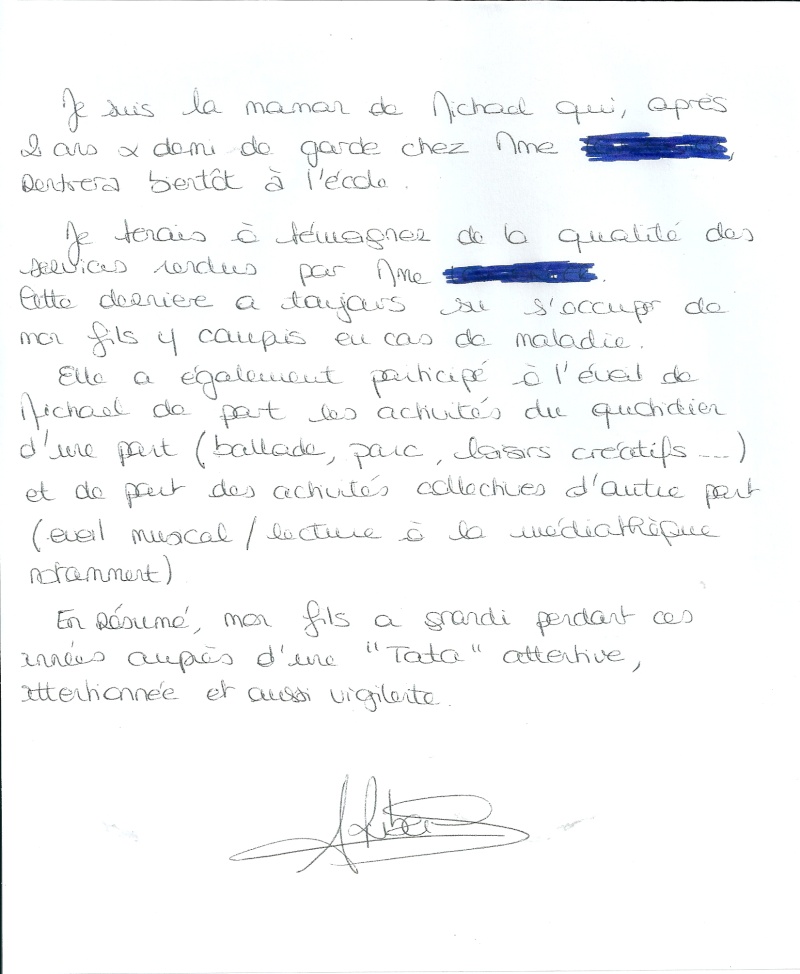 Je suis la maman de Michael qui, après
2 ans & demi de garde chez Mme
rentrera bientôt à l'école.
Je tenais à témoigner de la qualité des
services rendus par Mme
Cette dernière a toujours su s'occuper de
mon fils y compris en cas de maladie.
Elle a également participé à l'éveil de
Michael de part les activités du quotidien
d'une part (ballade, parc, loisirs créatifs ...)
et de part des activités collectives d'autre part
(eveil musical / lecture à la médiathèque
notamment)
En résumé, mon fils a grandi pendant ces
années auprès d'une "Tata" attentive,
attentionnée et aussi vigilente.